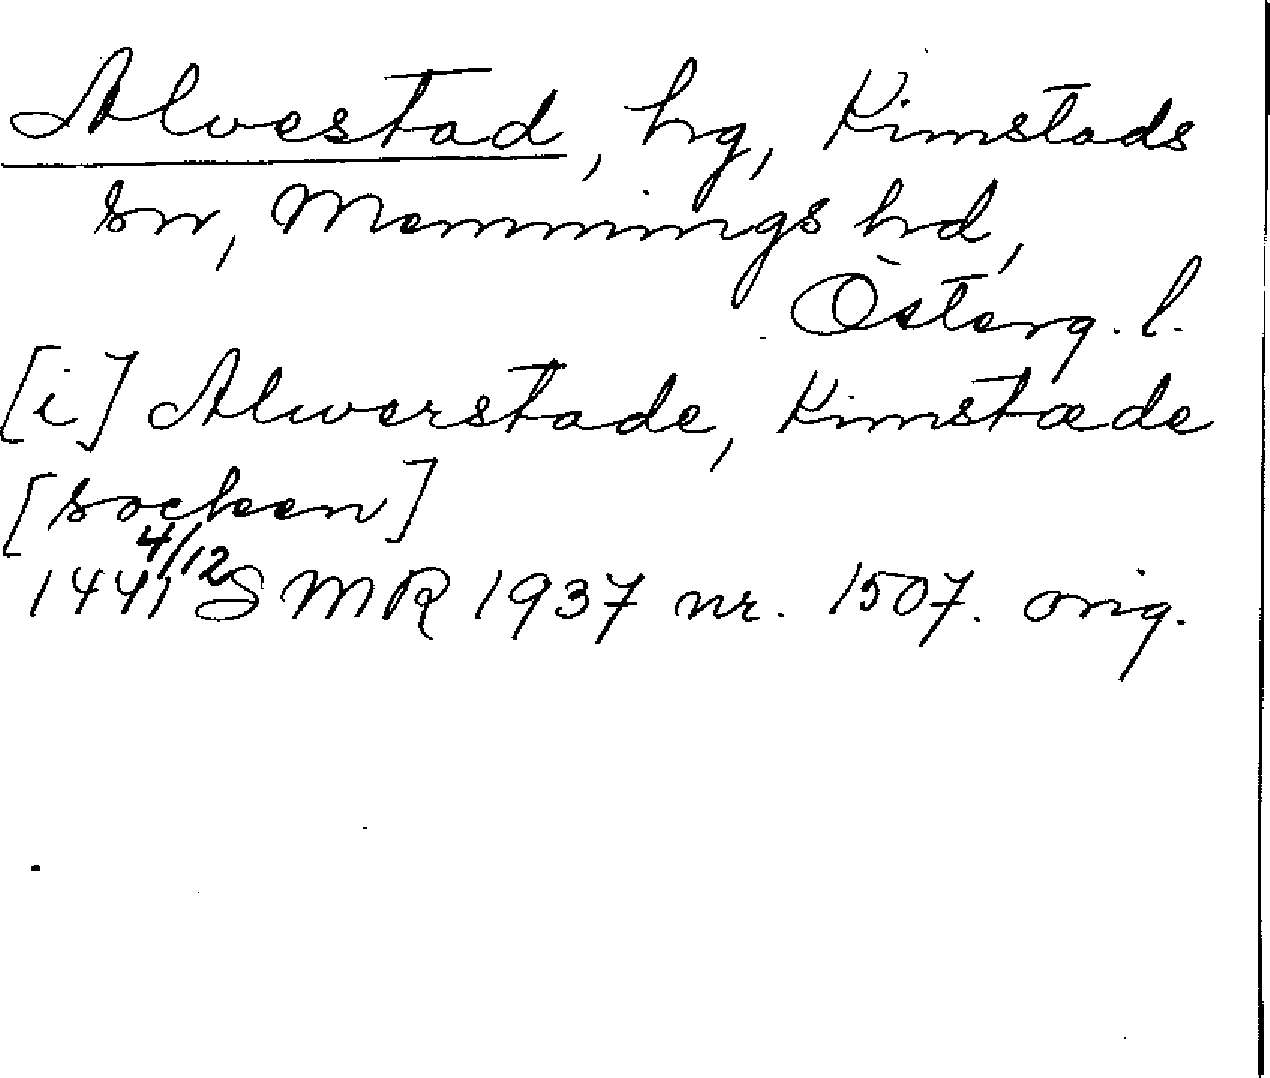 Alvestad, hg, Kimstads
sn, Memmings hd,
Österg. l.
[i] Alwerstade, Kimstæde
[socken]
1441 4/12 SMR 1937 nr. 1507. orig.